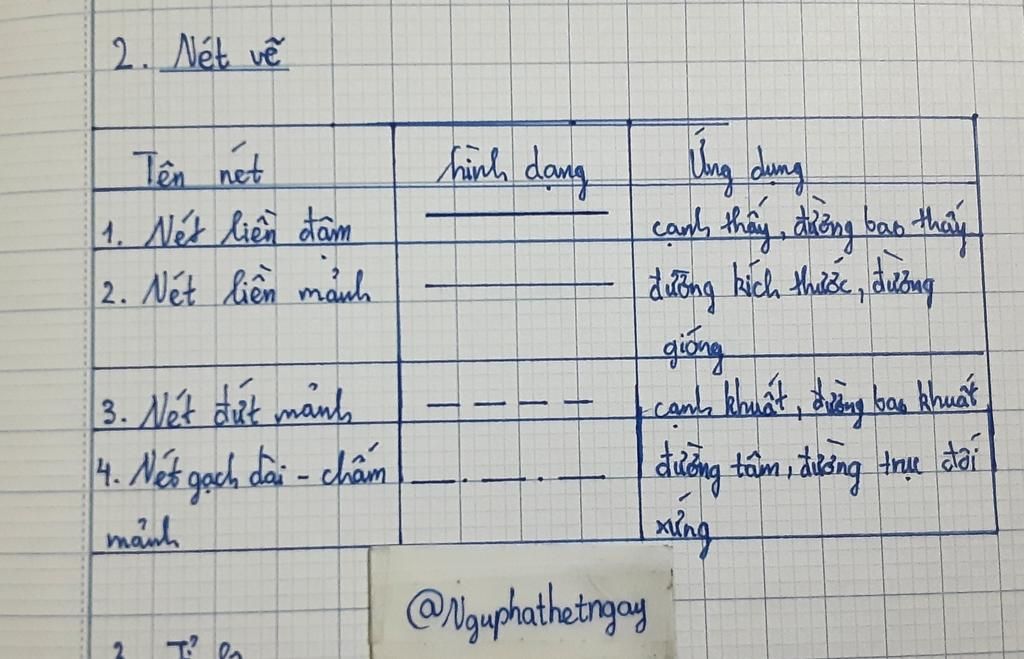 2. Nét vẽ
Tên nét hình dạng Ứng dụng
1. Nét liền đậm cạnh thấy, đường bao thấy
2. Nét liền mảnh đường kích thước, đường
gióng
3. Nét đứt mảnh cạnh khuất, đường bao khuất
4. Nét gạch dài - chấm đường tâm, đường trục đối
mảnh xứng
@Nguphathetngay